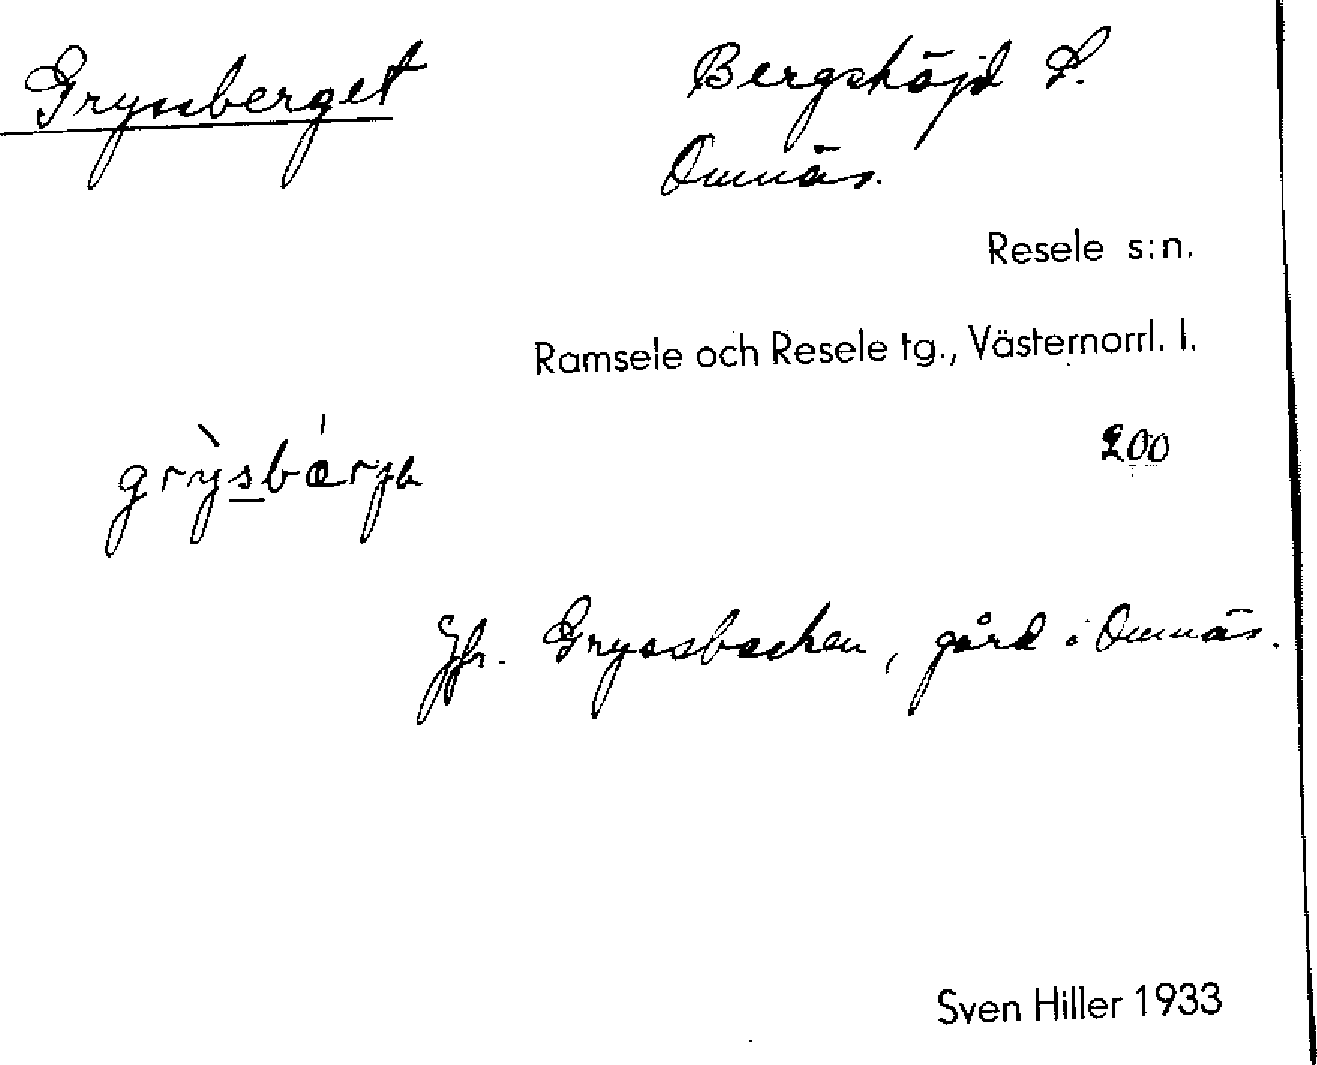 Gryssberget
Bergshöjd S.
Omnäs.
Resele s:n.
Ramsele och Resele tg., Västernorrl. l.
200
Jfr. Gryssbacken, gård i Omnäs.
Sven Hiller 1933